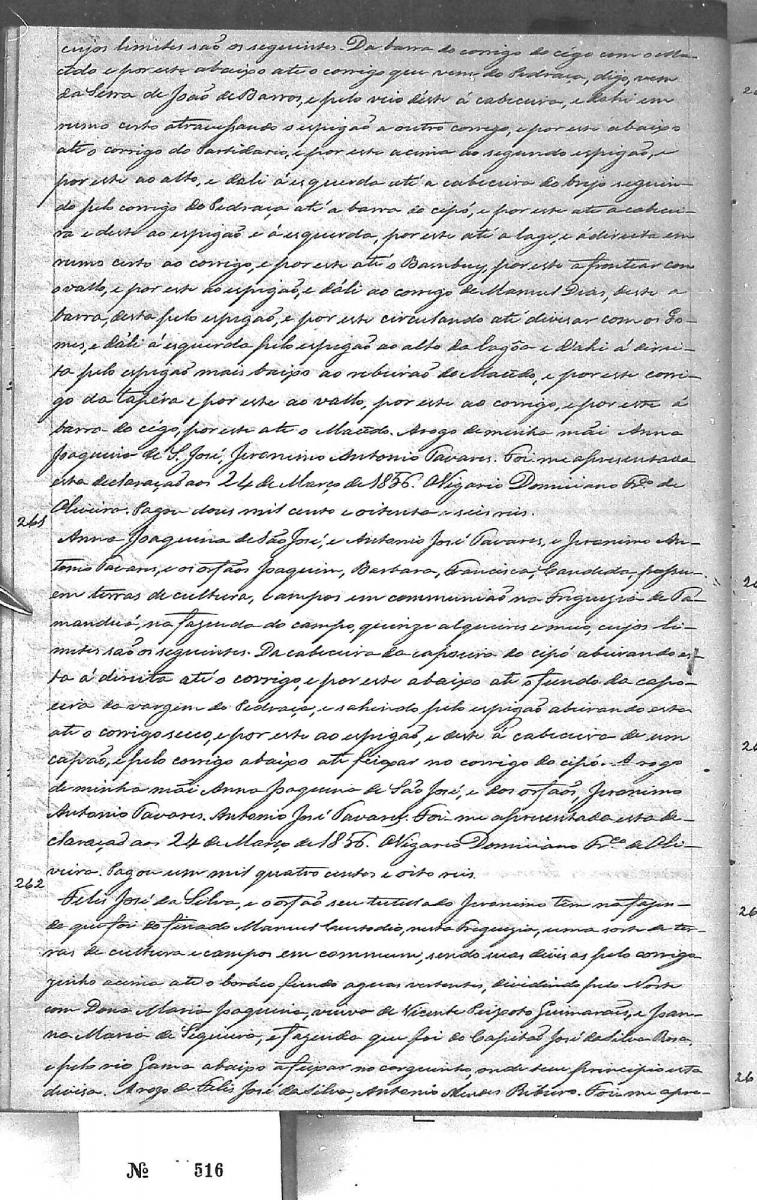 cujos limites são os seguintes. Da barra do corrigo do cégo com o Ma-
cêdo e por este abaixo até o corrigo que vem do Pedraça, digo, vem
da Serra de João de Barros, e pelo veio dêste á cabeceira, e dahi em
rumo certo atravessando o espigão a outro corrego, e por este abaixo
até o corrigo do Partidario, e por este acima ao segundo espigão, e
por este ao alto, e dáli á esquerda até a cabeceira do brejo seguin-
do pelo corrigo do Pedraça até a barra do cipó, e por este até a cabecei-
ra e deste ao espigão e á esquerda, por este até a lage, e á direita em
rumo certo ao corrigo, e por este até o Bambuy, por este a frontear com
o vallo, e por este ao espigão, e dáli ao corrigo de Manuel Dias, deste a
barra, desta pelo espigão, e por este circulando até divisar com os Go-
mes, e dáli á esquerda pelo espigão ao alto da lagôa e d'ahi á direi-
ta pelo espigão mais baixo ao ribeirão do Macêdo, e por este corri-
go da tapéra e por este ao vallo, por este ao corrigo, e por este á
barra do cégo, por este até o Macêdo. A rogo de minha mãi Anna
Joaquina de S. José, Jeronimo Antonio Tavares. Foi me apresentada
esta declaração aos 24 de Março de 1856. O Vigario Domiciano Fr.co de
Oliveira. Pagou dous mil cento e oitenta e seis reis.
261 Anna Joaquina de São José, e Antonio José Tavares, e Jeronimo An-
tonio Tavares, e os orfãos Joaquim, Barbara, Francisca, Candida, possu-
em terras de cultura, campos em communião na Freguezia de Ta-
manduá, na fazenda do campo, quinze alqueires e meio, cujos li-
mites são os seguintes. Da cabeceira da capoeira do cipó abeirando es-
ta á direita até o corrigo, e por este abaixo até o fundo da capo-
eira da vargem do Pedraça, e sahindo pelo espigão abeirando esta
até o corrigo secco, e por este ao espigão, e deste á cabeceira de um
capão, e pelo corrigo abaixo até feixar no corrigo do cipó. A rogo
de minha mãi Anna Joaquina de São José, e dos orfãos, Jeronimo
Antonio Tavares. Antonio José Tavares. Foi me apresentada esta de-
claração aos 24 de Março de 1856. O Vigario Domiciano Fr.co de Oli-
veira. Pagou um mil quatro centos e oito reis.
262 Felis José da Silva, e o orfão seu tutellado Jeronimo têm na fazen-
da que foi do finado Manuel Custodio, nesta Freguezia, uma sorte de ter-
ras de cultura e campos em commum, sendo suas divisas pelo corrigo
zinho acima até o boráco fundo aguas vertentes, dividindo pelo Norte
com Dona Maria Joaquina, viuva de Vicente Peixoto Guimarães, e Joan-
na Maria de Siqueira, e fazenda que foi do Capitão José da Silva Rosa,
e pelo rio Gama abaixo a feixar no corguinho, onde teve principio esta
divisa. A rogo de Felis José da Silva, Antonio Mendes Ribeiro. Foi me apre-
Nº 516